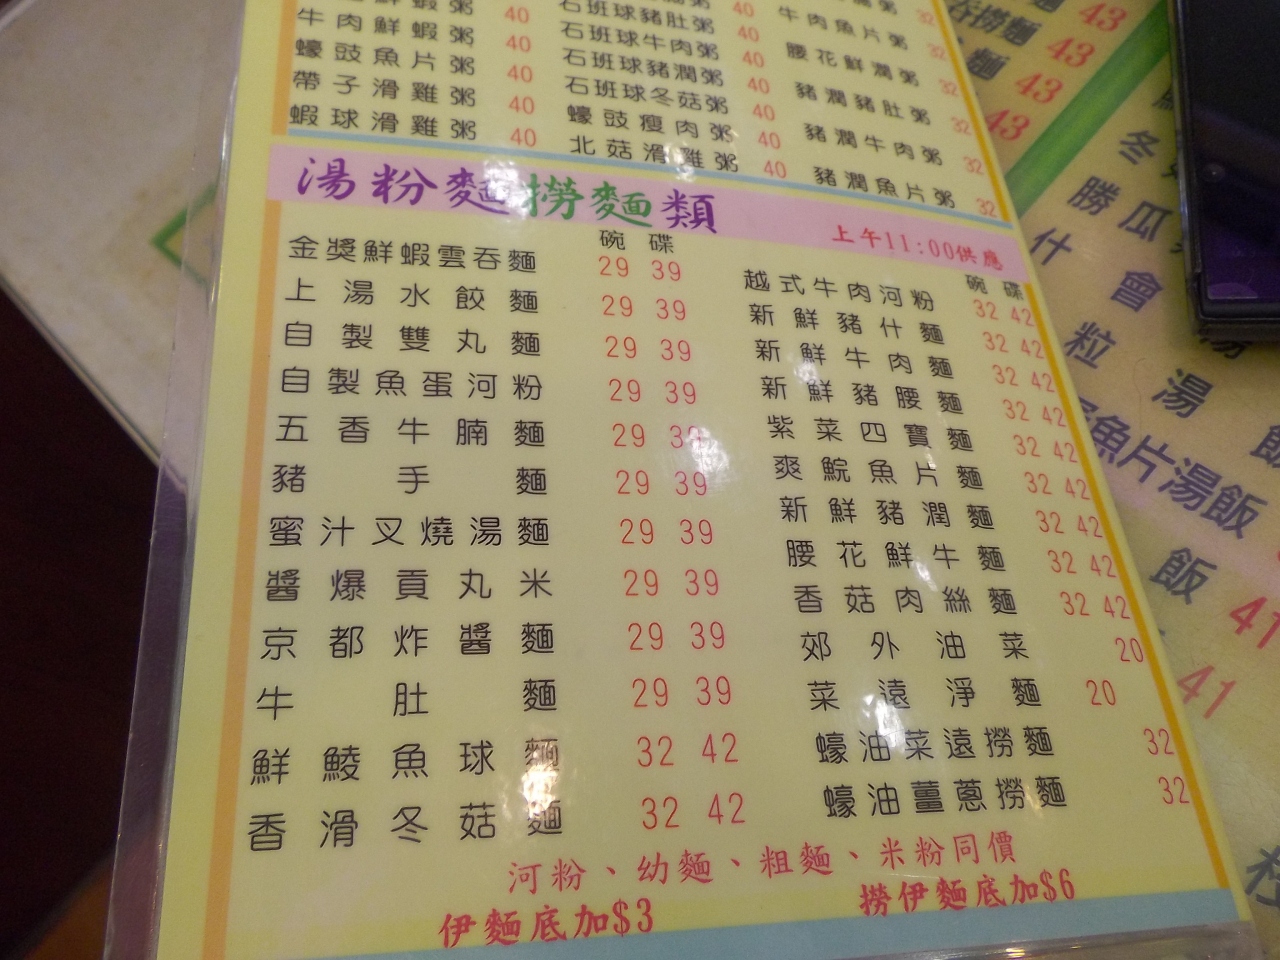 牛肉鮮蝦粥 40
蠔豉魚片粥 40
帶子滑雞粥 40
蝦球滑雞粥 40
石班球豬肚粥 40
石班球牛肉粥 40
石班球豬潤粥 40
石班球冬菇粥 40
蠔豉瘦肉粥 40
北菇滑雞粥 40
牛肉魚片粥 32
腰花鮮潤粥 32
豬潤豬肚粥 32
豬潤牛肉粥 32
豬潤魚片粥 32
湯粉麵撈麵類
上午11:00供應
碗 碟
金獎鮮蝦雲吞麵 29 39
上湯水餃麵 29 39
自製雙丸麵 29 39
自製魚蛋河粉 29 39
五香牛腩麵 29 39
豬手麵 29 39
蜜汁叉燒湯麵 29 39
醬爆貢丸米 29 39
京都炸醬麵 29 39
牛肚麵 29 39
鮮鯪魚球麵 32 42
香滑冬菇麵 32 42
碗 碟
越式牛肉河粉 32 42
新鮮豬什麵 32 42
新鮮牛肉麵 32 42
新鮮豬腰麵 32 42
紫菜四寶麵 32 42
爽鯇魚片麵 32 42
新鮮豬潤麵 32 42
腰花鮮牛麵 32 42
香菇肉絲麵 32 42
郊外油菜 20
菜遠淨麵 20
蠔油菜遠撈麵 32
蠔油薑蔥撈麵 32
河粉、幼麵、粗麵、米粉同價
伊麵底加$3
撈伊麵底加$6
43
撈麵 43
麵 43
43
冬
勝瓜
什會
粒湯飯
魚片湯飯
飯 41
41